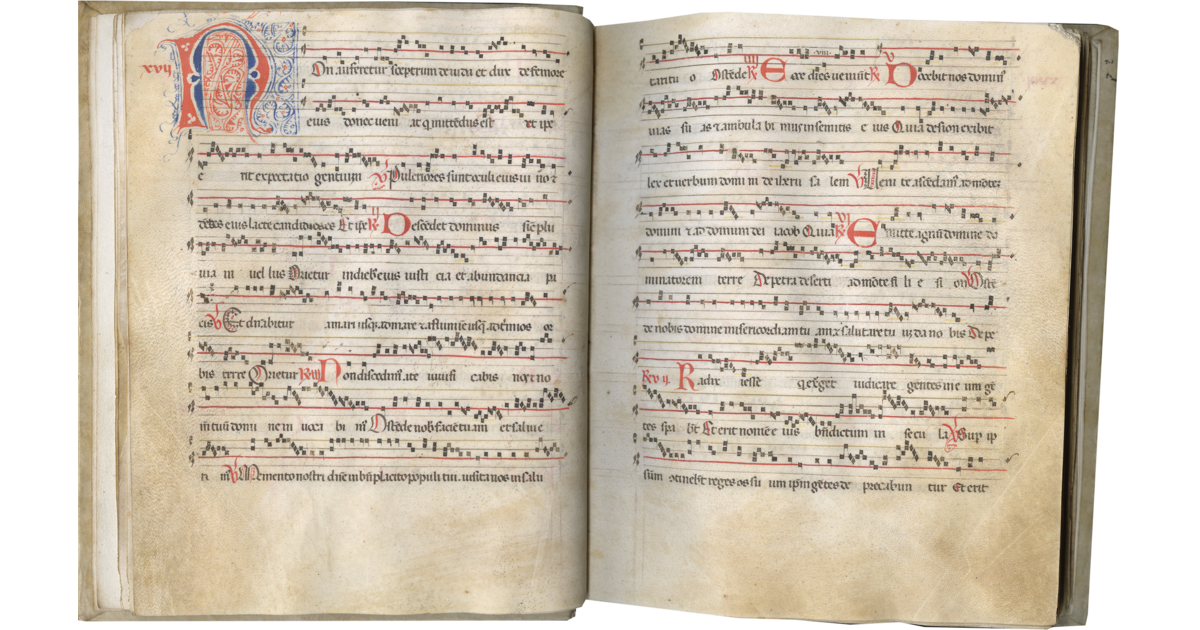 xvij
Non auferetur sceptrum de iuda et dux de femore
eius donec ueni at q mittēdus est et ipe
e rit expectatio gentium V Pulcriores sunt oculi eius ui no z
dētes eius lacte candidiores Et ipe R Descēdet dominus sic plu
uia in uel lus Orietur in dieb eius iusti cia et abundancia pa
cis V Et dn̄abitur a mari usq ad mare z a flumīe usq ad t̄minos or
bis terre Orietur R Non discedim a te uiuifi cabis nos z no
m̄ tuū domi ne in uoca bi m Ostēde nob faciē tu am et salui e
ri m V Memento nostri dn̄e in bn̄placito populi tui uisita nos in salu
tari tu o Ostēde R Ecce dies ueniūt R Docebit nos domin
uias su as z ambula bi mus in semitis e ius Quia de sion exibit
lex et uerbum domi ni de iheru sa lem V Veni te ascēdam ad mōtez
domini z ad domum dei iacob Quia R Emitte agnū domine do
minatorem terre De petra deserti ad mōtē fi li e si on V Oste
de nobis domine misericordiam tu am z salutare tu um da no bis De pe
R Radix iesse q exurget iudicare gentes in e um gē
tes spa bt Et erit nomē e ius bn̄dictum in secu la V Sup ip
sum ↄtinebt reges os su um ipm gētes de precabun tur Et erit